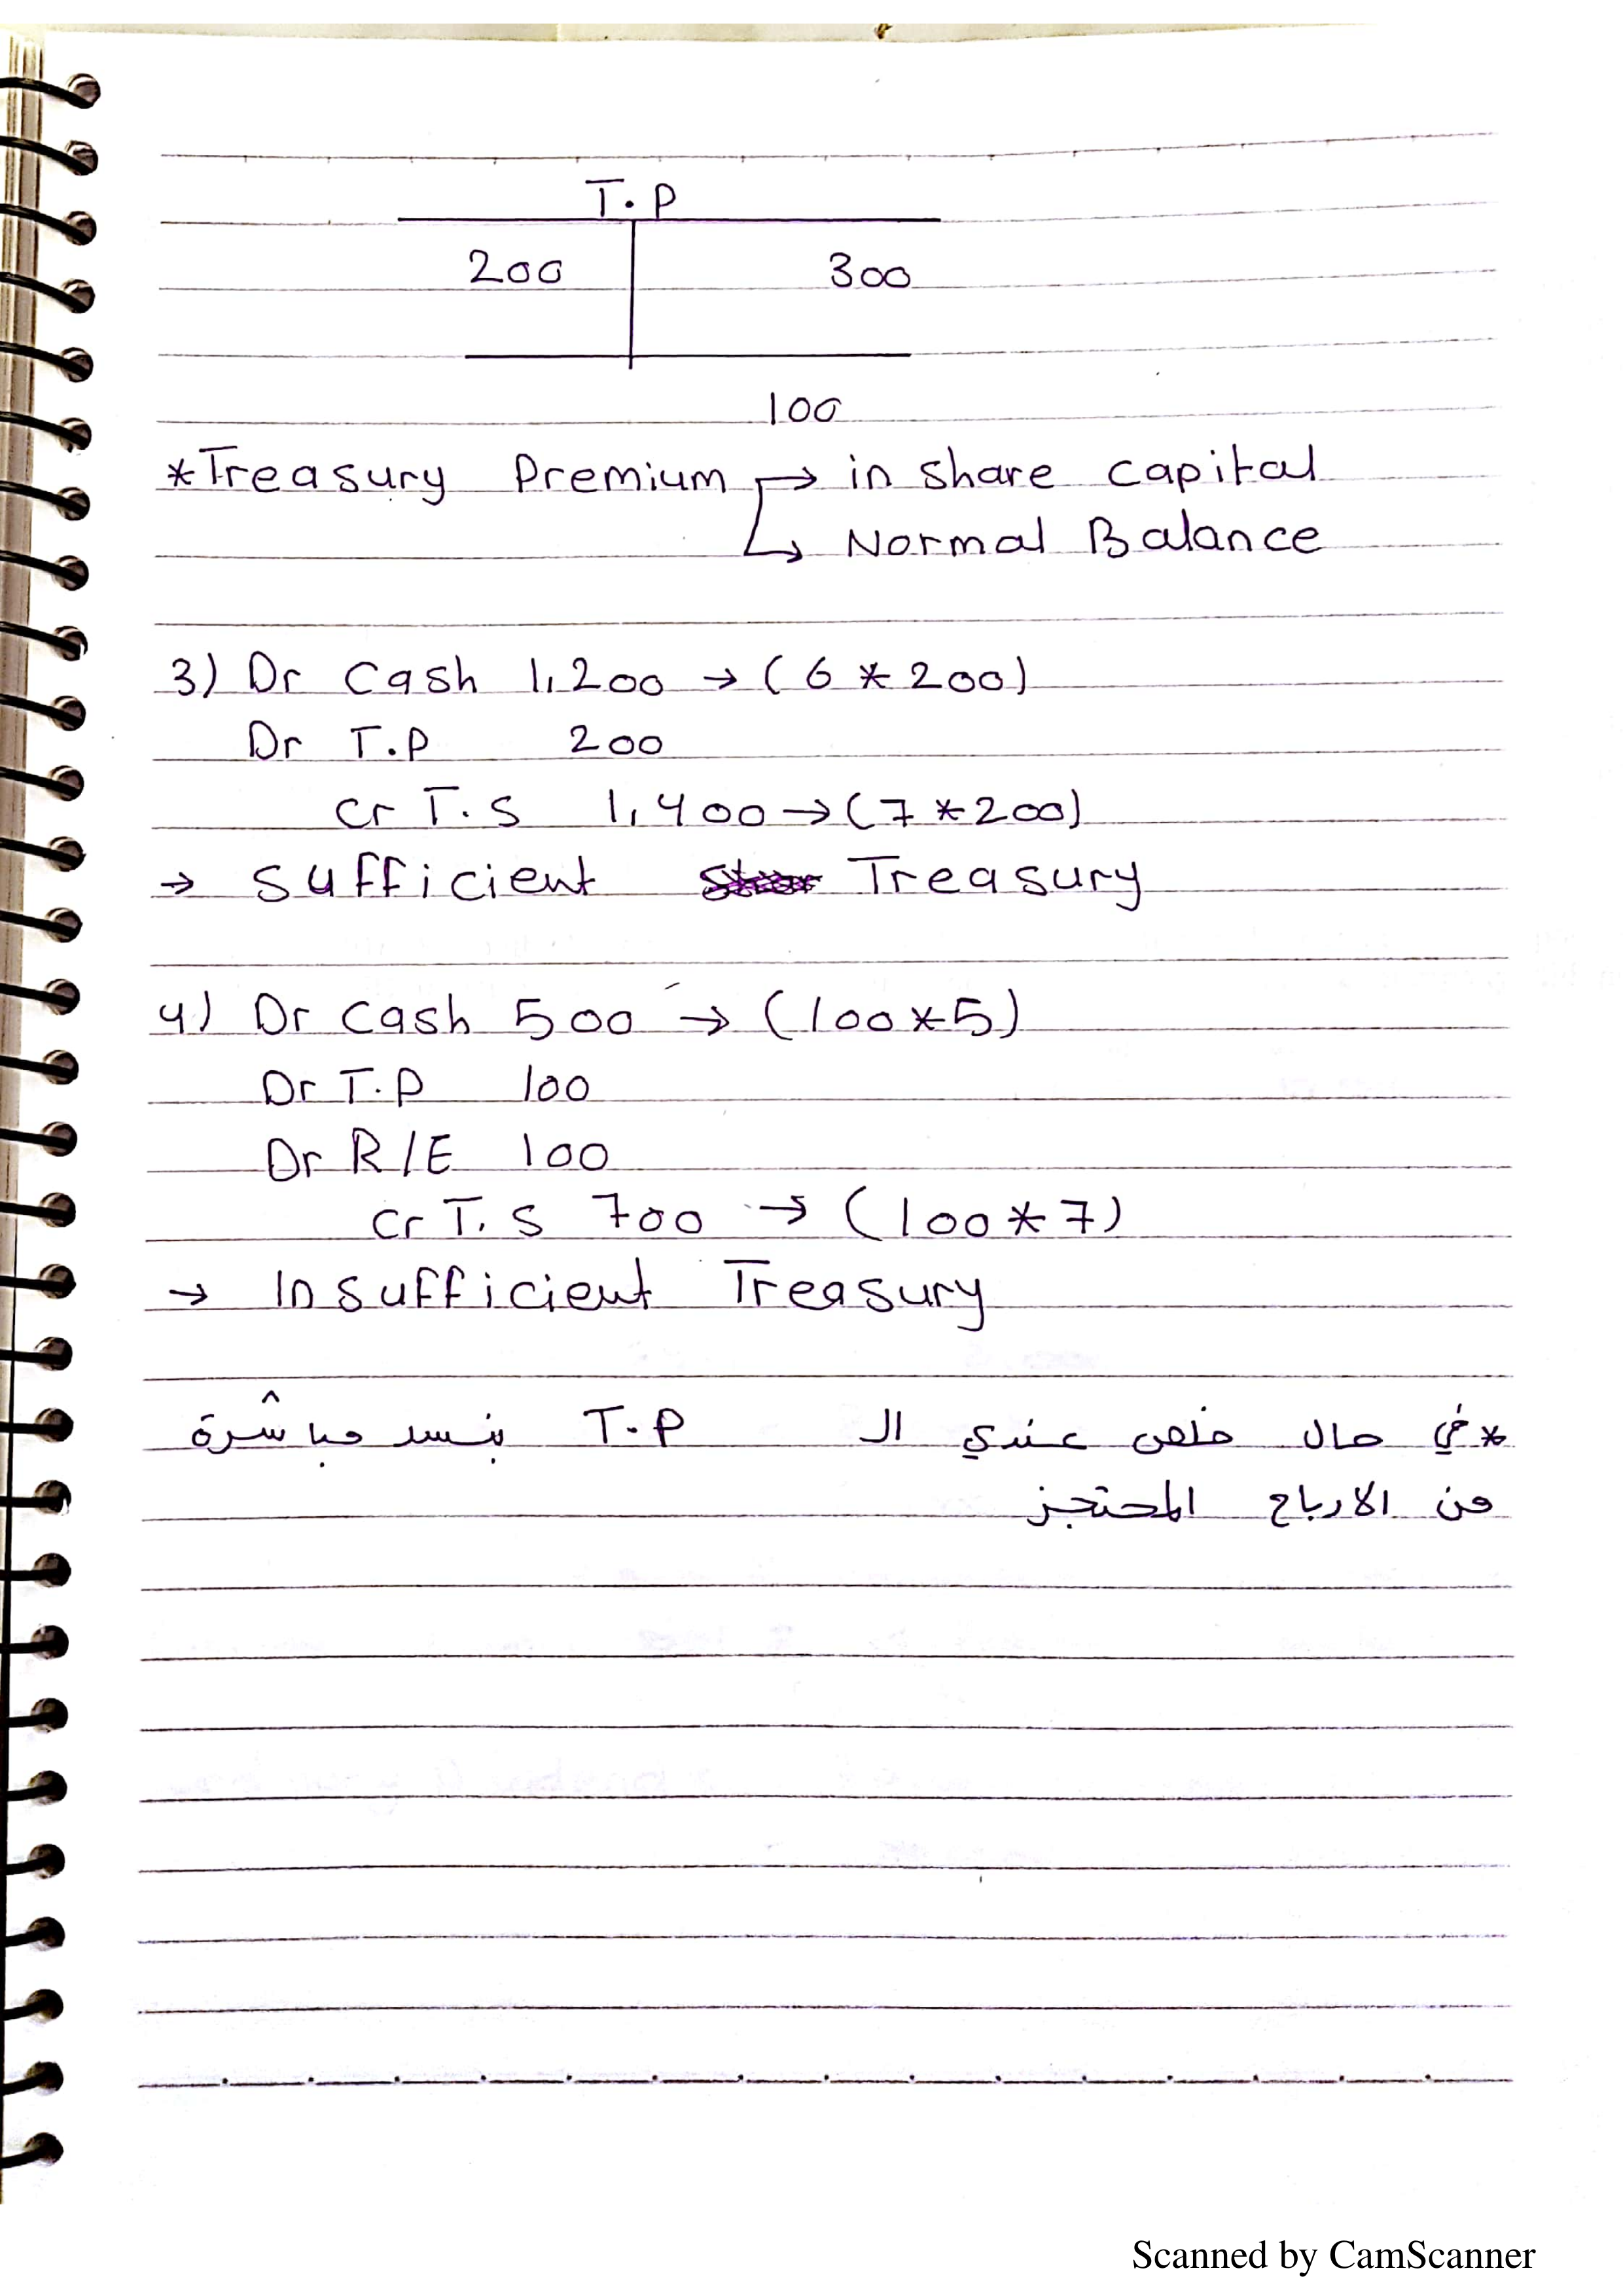 T.P
200 300
100
*Treasury Premium → in share capital
↳ Normal Balance
3) Dr Cash 1,200 → (6 * 200)
Dr T.P 200
cr T.S 1,400 → (7 * 200)
→ Sufficient Treasury
4) Dr Cash 500 → (100 * 5)
Dr T.P 100
Dr R/E 100
cr T.S 700 → (100 * 7)
→ Insufficient Treasury
* في حال خلص عندي ال T.P بنسد مباشرة
من الارباح المحتجز
Scanned by CamScanner